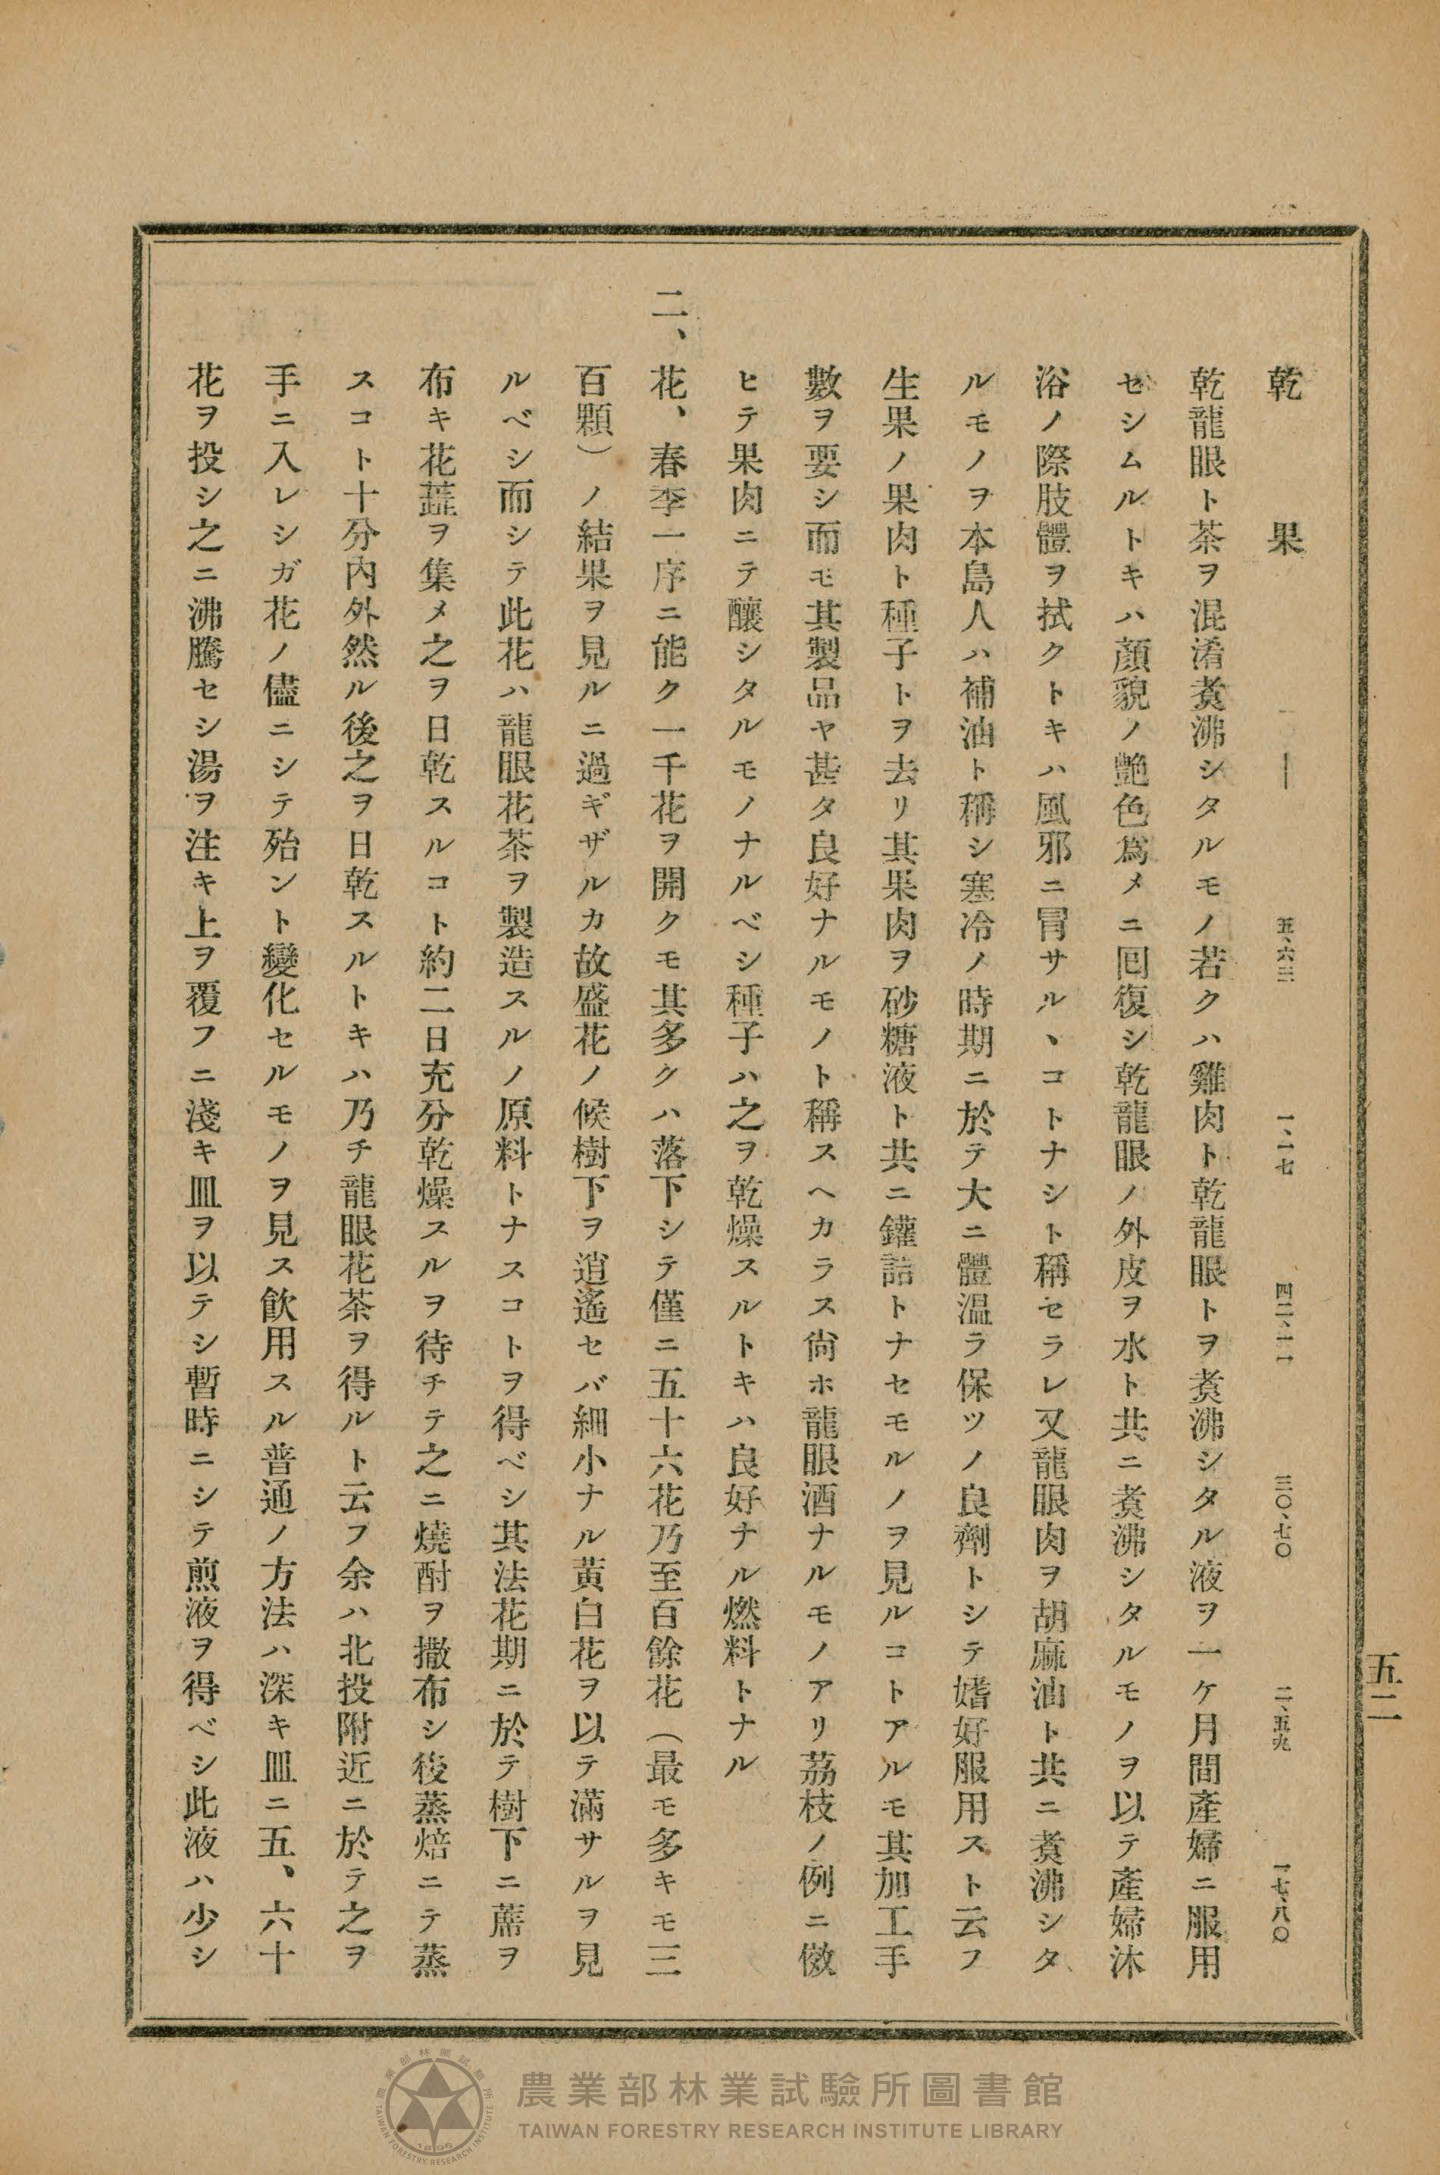 五二
乾果 一 五、六三 一、一七 四二、一一 三〇、七〇 二、五九 一七、八〇
乾龍眼ト茶ヲ混淆煑沸シタルモノ若クハ雞肉ト乾龍眼トヲ煑沸シタル液ヲ一ケ月間產婦ニ服用
セシムルトキハ顏貌ノ艶色爲メニ囘復シ乾龍眼ノ外皮ヲ水ト共ニ煑沸シタルモノヲ以テ產婦沐
浴ノ際肢體ヲ拭クトキハ風邪ニ冐サルヽコトナシト稱セラレ又龍眼肉ヲ胡麻油ト共ニ煑沸シタ
ルモノヲ本島人ハ補油ト稱シ寒冷ノ時期ニ於テ大ニ體溫ラ保ツノ良劑トシテ嗜好服用スト云フ
生果ノ果肉ト種子トヲ去リ其果肉ヲ砂糖液ト共ニ鑵詰トナセモルノヲ見ルコトアルモ其加工手
數ヲ要シ而モ其製品ヤ甚タ良好ナルモノト稱スヘカラス尙ホ龍眼酒ナルモノアリ荔枝ノ例ニ傚
ヒテ果肉ニテ釀シタルモノナルベシ種子ハ之ヲ乾燥スルトキハ良好ナル燃料トナル
二、花、春季一序ニ能ク一千花ヲ開クモ其多クハ落下シテ僅ニ五十六花乃至百餘花（最モ多キモ三
百顆）ノ結果ヲ見ルニ過ギザルカ故盛花ノ候樹下ヲ逍遙セバ細小ナル黃白花ヲ以テ滿サルヲ見
ルベシ而シテ此花ハ龍眼花茶ヲ製造スルノ原料トナスコトヲ得ベシ其法花期ニ於テ樹下ニ蓆ヲ
布キ花蕋ヲ集メ之ヲ日乾スルコト約二日充分乾燥スルヲ待チテ之ニ燒酎ヲ撒布シ後蒸焙ニテ蒸
スコト十分內外然ル後之ヲ日乾スルトキハ乃チ龍眼花茶ヲ得ルト云フ余ハ北投附近ニ於テ之ヲ
手ニ入レシガ花ノ儘ニシテ殆ント變化セルモノヲ見ス飮用スル普通ノ方法ハ深キ皿ニ五、六十
花ヲ投シ之ニ沸騰セシ湯ヲ注キ上ヲ覆フニ淺キ皿ヲ以テシ暫時ニシテ煎液ヲ得ベシ此液ハ少シ
農業部林業試驗所圖書館
TAIWAN FORESTRY RESEARCH INSTITUTE LIBRARY
農業部林業試驗所
TAIWAN FORESTRY RESEARCH INSTITUTE
1896